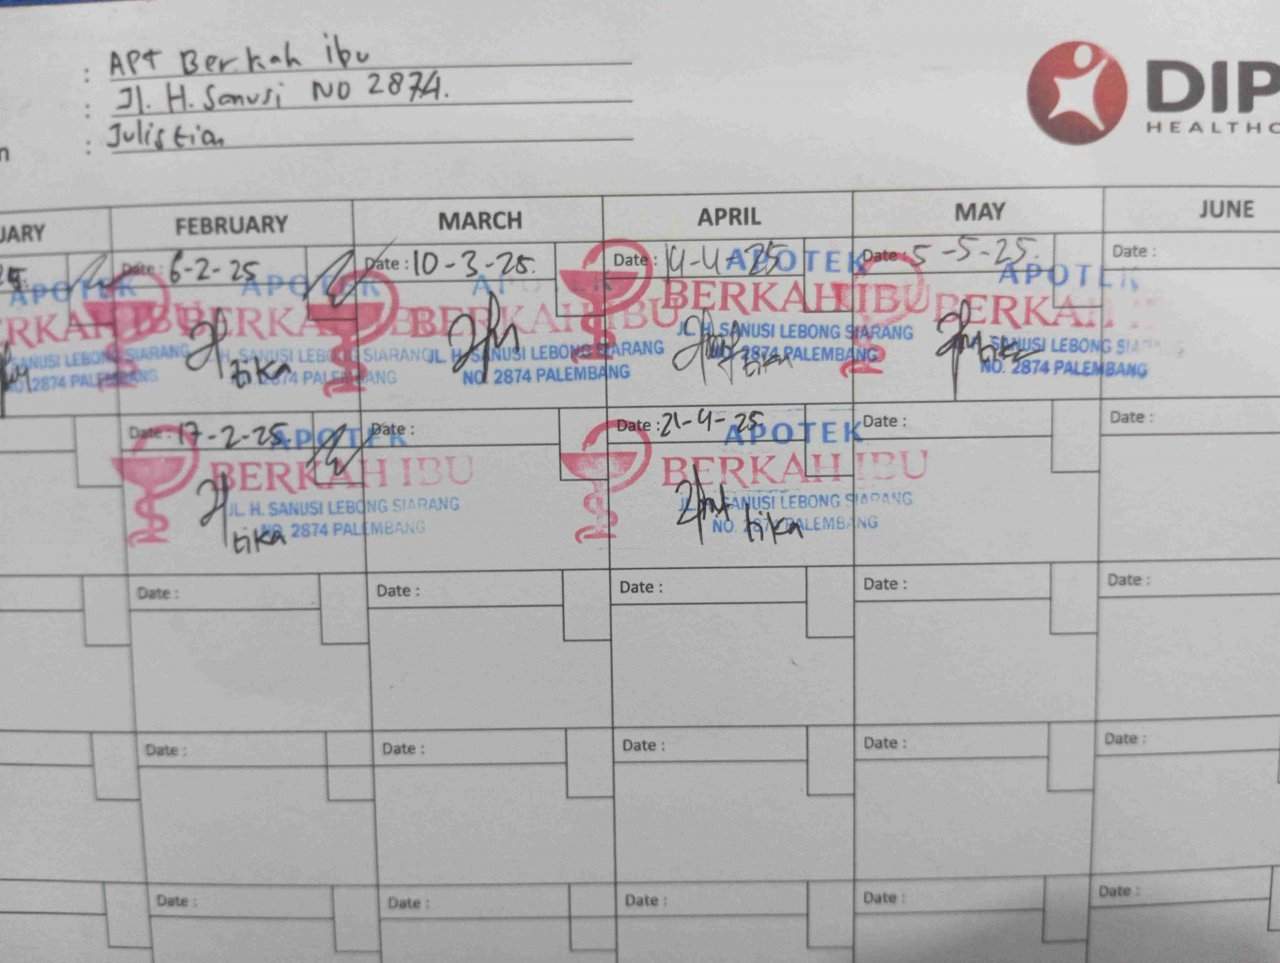 : APT Berkah ibu
: Jl. H. Sanusi NO 2874.
n : Julistian
DIP
HEALTHC
UARY FEBRUARY MARCH APRIL MAY JUNE
Date : 6-2-25 Date : 10-3-25. Date : 14-4-25 Date : 5-5-25. Date :
APOTEK APOTEK APOTEK APOTEK APOTEK
BERKAH IBU BERKAH IBU BERKAH IBU BERKAH IBU BERKAH
JL. H. SANUSI LEBONG SIARANG JL. H. SANUSI LEBONG SIARANG JL. H. SANUSI LEBONG SIARANG SANUSI LEBONG SIARANG
NO. 2874 PALEMBANG 2874 PALEMBANG NO. 2874 PALEMBANG NO. 2874 PALEMBANG NO. 2874 PALEMBANG
tika tika tika
Date : 17-2-25 Date : Date : 21-4-25 Date : Date :
APOTEK APOTEK
BERKAH IBU BERKAH IBU
JL. H. SANUSI LEBONG SIARANG JL. SANUSI LEBONG SIARANG
NO. 2874 PALEMBANG NO. 2874 PALEMBANG
tika tika
Date : Date : Date : Date : Date :
Date : Date : Date : Date : Date :
Date : Date : Date : Date : Date :